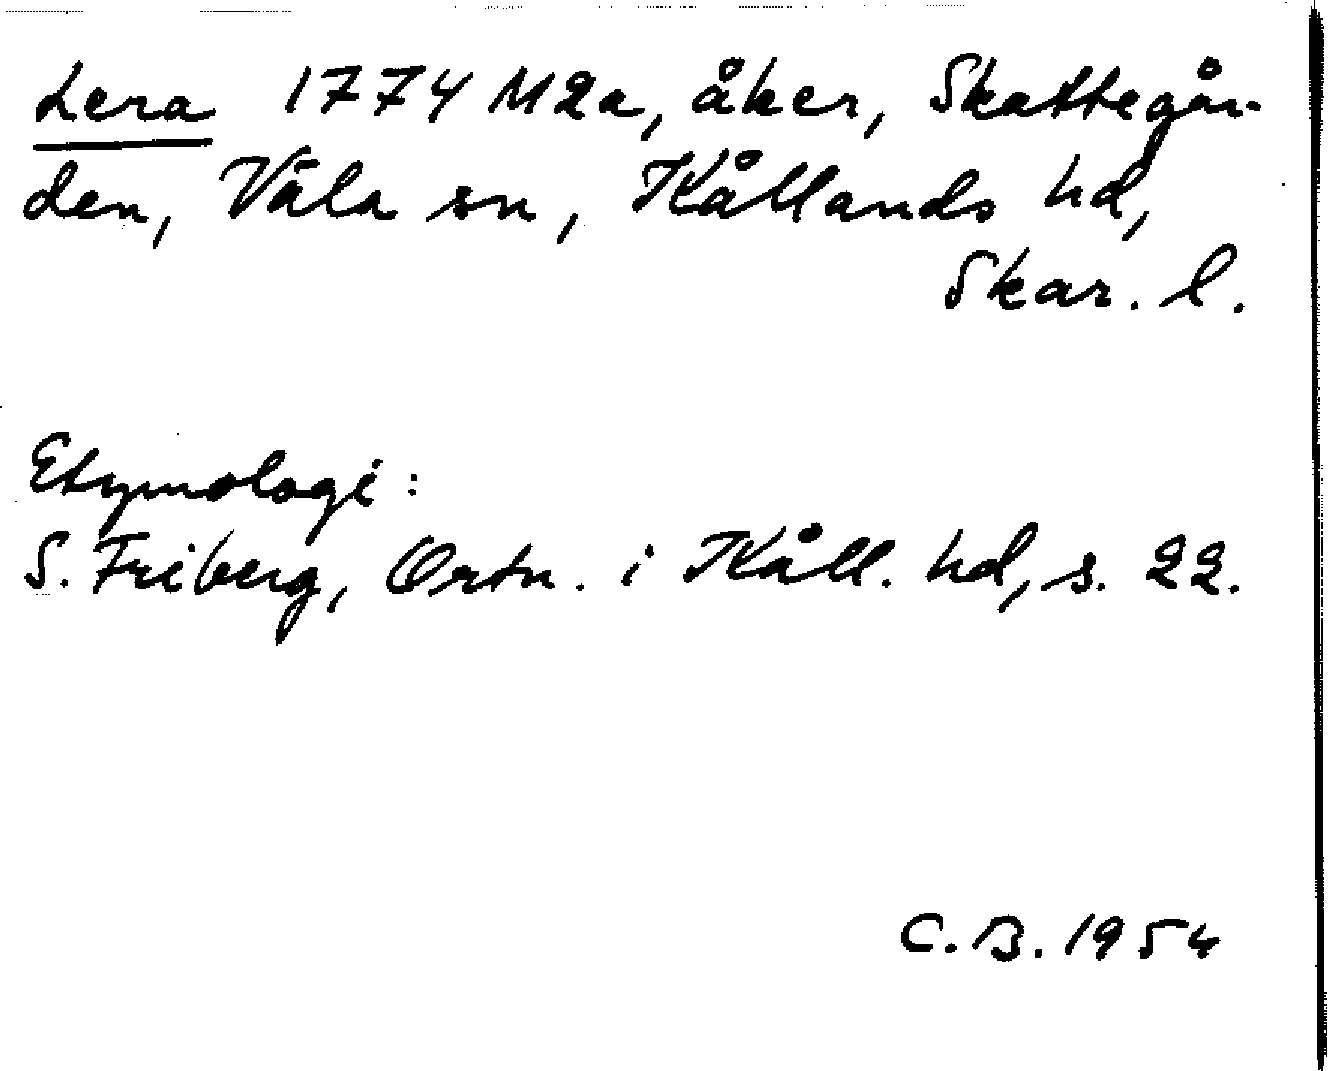 Lera 1774 M2a, åker, Skattegår-
den, Väla sn, Kållands hd,
Skar. l.
Etymologi:
S. Friberg, Ortn. i Kåll. hd, s. 22.
C.B. 1954